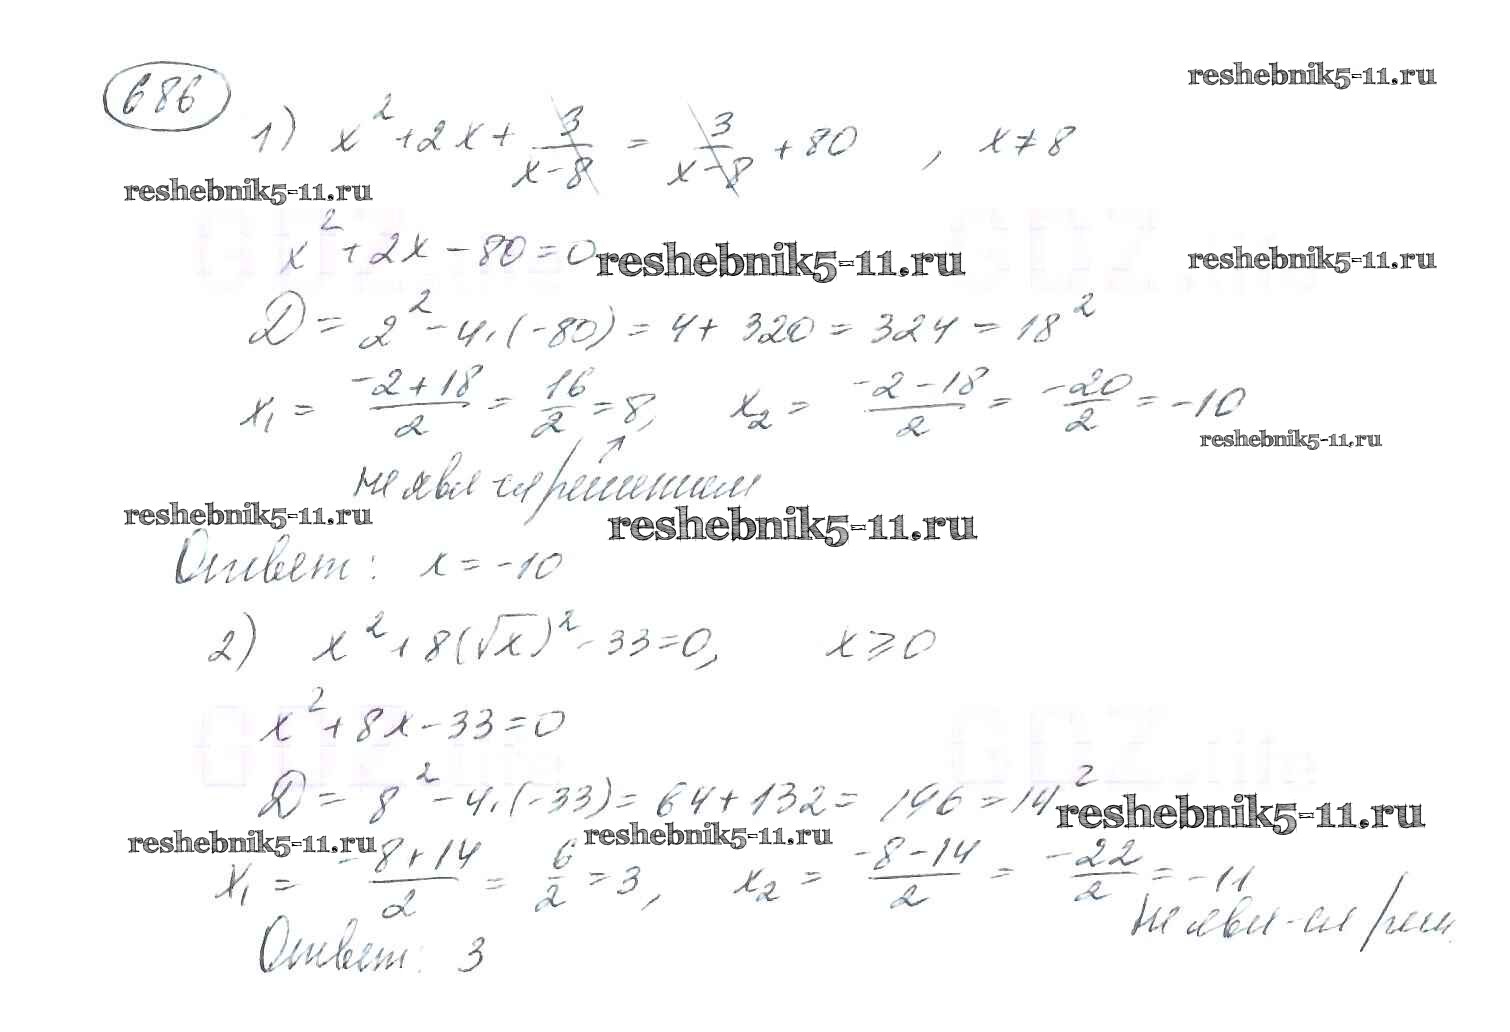 686
reshebnik5-11.ru
1) x² + 2x + 3/(x-8) = 3/(x-8) + 80 , x ≠ 8
reshebnik5-11.ru
x² + 2x - 80 = 0
reshebnik5-11.ru
reshebnik5-11.ru
D = 2² - 4·(-80) = 4 + 320 = 324 = 18²
x₁ = (-2+18)/2 = 16/2 = 8, x₂ = (-2-18)/2 = -20/2 = -10
reshebnik5-11.ru
не явл-ся решением
reshebnik5-11.ru
reshebnik5-11.ru
Ответ: x = -10
2) x² + 8(√x)² - 33 = 0, x ⩾ 0
x² + 8x - 33 = 0
GDZ.life
D = 8² - 4·(-33) = 64 + 132 = 196 = 14²
reshebnik5-11.ru
reshebnik5-11.ru
reshebnik5-11.ru
x₁ = (-8+14)/2 = 6/2 = 3, x₂ = (-8-14)/2 = -22/2 = -11
не явл-ся реш
Ответ: 3